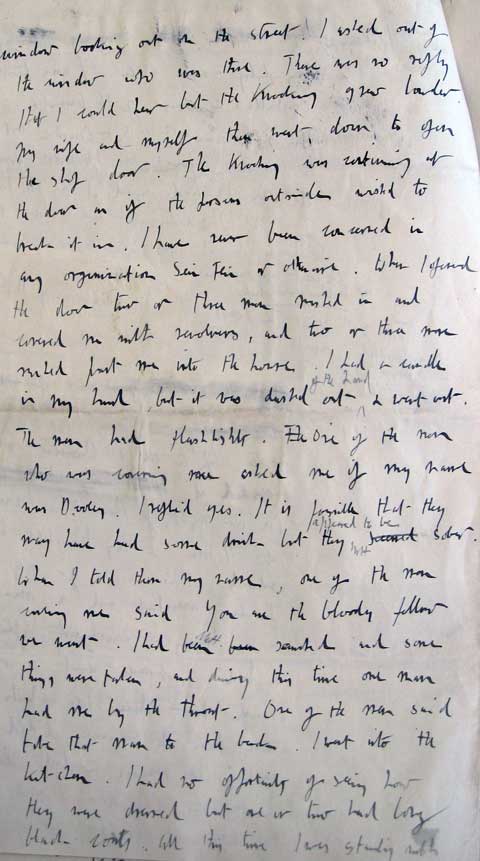 window looking out on the street. I asked out of
the window who was there. There was no reply
that I could hear but the knocking grew louder.
My wife and myself then went down to open
the shop door. The knocking was continuing at
the door as if the persons outside wished to
break it in. I have never been concerned in
any organization Sein Fein or otherwise. When I opened
the door two or three men rushed in and
covered me with revolvers, and two or three more
rushed past me into the house. I had a candle
of the hand
in my hand, but it was dashed out & went out.
The men had flashlights. One of the men
who was covering me asked me if my name
was Dooley. I replied yes. It is possible that they
appeared to be
may have had some drink but they seemed sober.
When I told them my name, one of the men
covering me said You are the bloody fellow
we want. I had been searched and some
things were taken, and during this time one man
had me by the throat. One of the men said
take that man to the back. I went into the
kitchen. I had no opportunity of seeing how
they were dressed but one or two had long
black coats. All this time I was standing